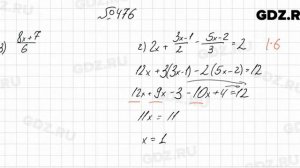 №476
GDZ.RU
) \frac{8x+7}{6}
2) 2x + \frac{3x-1}{2} - \frac{5x-2}{3} = 2 |·6
12x + 3(3x-1) - 2(5x-2) = 12
12x + 9x - 3 - 10x + 4 = 12
11x = 11
x = 1
GDZ.RU